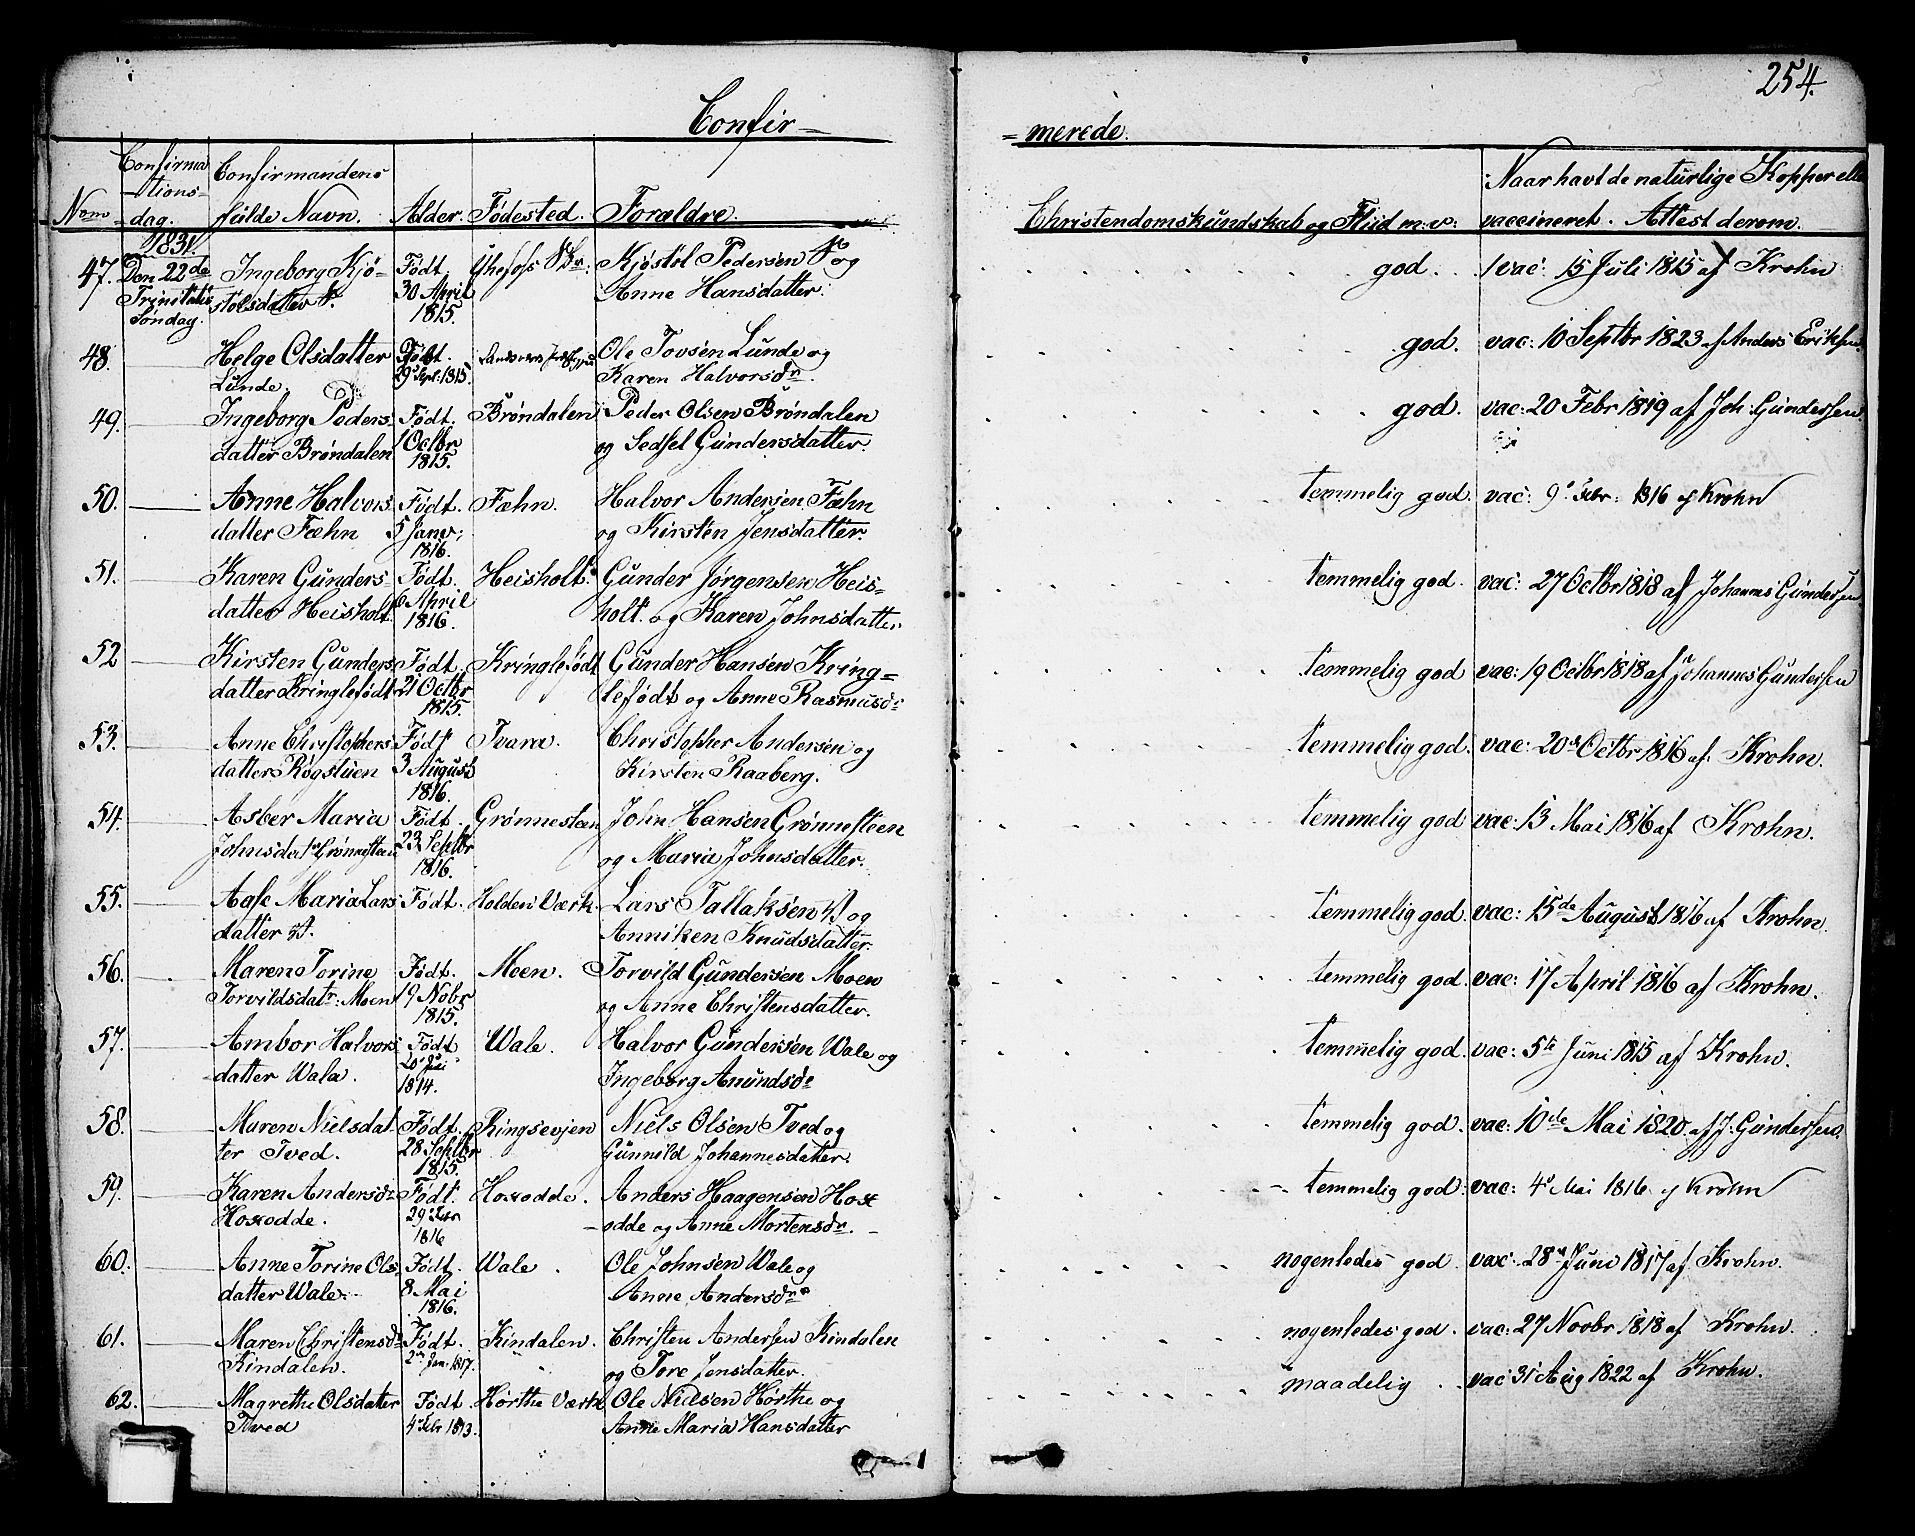 254.
Confir=
=merede.
Nom
Confirma
tions-
dag.
Confirmandens
fulde Navn.
Alder.
Fødested.
Forældre.
Christendomskundskab og Fliid m: v:
Naar havt de naturlige Kopper elle
vaccineret. Attest derom.
1831.
47. Den 22de Ingeborg Kjø- Født Kjøstol Pedersen og god. vac: 15 Juli 1815 af Krohn
Trinitatis stolsdatter 30 April Anne Hansdatter.
Søndag. 1815.
48. Helge Olsdatter Født. Ole Tovsen Lunde og god. vac: 10 Septbr 1823 af Anders Eriksen
Lunde. 9 Sept: 1815. Karen Halvorsdr.
49. Ingeborg Peders Født. Brøndalen Peder Olsen Brøndalen god. vac: 20 Febr 1819 af Joh: Gundersen
datter Brøndalen 1 Octbr og Sedsel Gundersdatter.
1815.
50. Anne Halvors Født. Fæhn. Halvor Andersen Fæhn temmelig god. vac: 9 Febr: 1816 af Krohn
datter Fæhn 5 Janv: og Kirsten Jensdatter.
1816.
51. Karen Gunders- Født. Heisholt. Gunder Jørgensen Heis- temmelig god. vac: 27 Octbr 1818 af Johannes Gundersen
datter Heisholt 6 April holt. og Karen Johnsdatter
1816.
52 Kirsten Gunders Født. Kringlefødt Gunder Hansen Kring= temmelig god vac: 19 Octbr 1818 af Johannes Gundersen
datter Kringlefødt 21 Octbr lefødt og Anne Rasmusdr
1815.
53. Anne Christophers Født Tvara. Christopher Andersen og temmelig god. vac: 20de Octbr 1816 af Krohn.
datter Røgstuen 3 August Kirsten Raaberg.
1816.
54. Asber Maria Født. Grønnesteen John Hansen Grønnesteen temmelig god vac: 13 Mai 1816 af Krohn.
Johnsdatr Grønnesteen 23 Septbr og Maria Johnsdatter.
1816.
55. Aase Maria Lars Født. Holden Værk. Lars Tallaksen og temmelig god. vac: 15de August 1816 af Krohn.
datter Anniken Knudsdatter.
56. Maren Torine Født. Moen. Torvild Gundersen Moen temmelig god. vac: 17 April 1816 af Krohn.
Torvildsdatr: Moen 19 Nobr og Anne Christensdatter.
1815.
57. Ambor Halvors Født Wale. Halvor Gundersen Wale og temmelig god. vac: 5te Juni 1815 af Krohn.
datter Wala. Ingeborg Anundsdr
1814.
58. Maren Nielsdat Født. Ringsevjen Niels Olsen Tved og temmelig god. vac: 10de Mai 1820 af J: Gundersen
ter Tved. 28 Septbr Gunnild Johannesdatter.
1815.
59. Karen Andersdr Født. Hoxodde. Anders Haagensen Hox temmelig god. vac: 4 Mai 1816 af Krohn
Hoxodde. 29 Febr odde og Anne Mortensdr.
1816
60. Anne Torine Ols Født. Wale. Ole Johnsen Wale og nogenledes god. vac: 28 Juni 1817 af Krohn.
datter Wale. 8 Mai Anne Andersdr
1816.
61. Maren Christensdr Født. Kindalen. Christen Andersen Kindalen nogenledes god. vac: 27 Novbr 1818 af Krohn.
Kindalen. 2 Jan. 1817. og Tore Jensdatter.
62. Magrethe Olsdatter Født Hørthe Værk Ole Nielsen Hørthe og maadelig vac 31 Aug 1822 af Krohn.
Tved 4 Febr 1813. Anne Maria Hansdatter